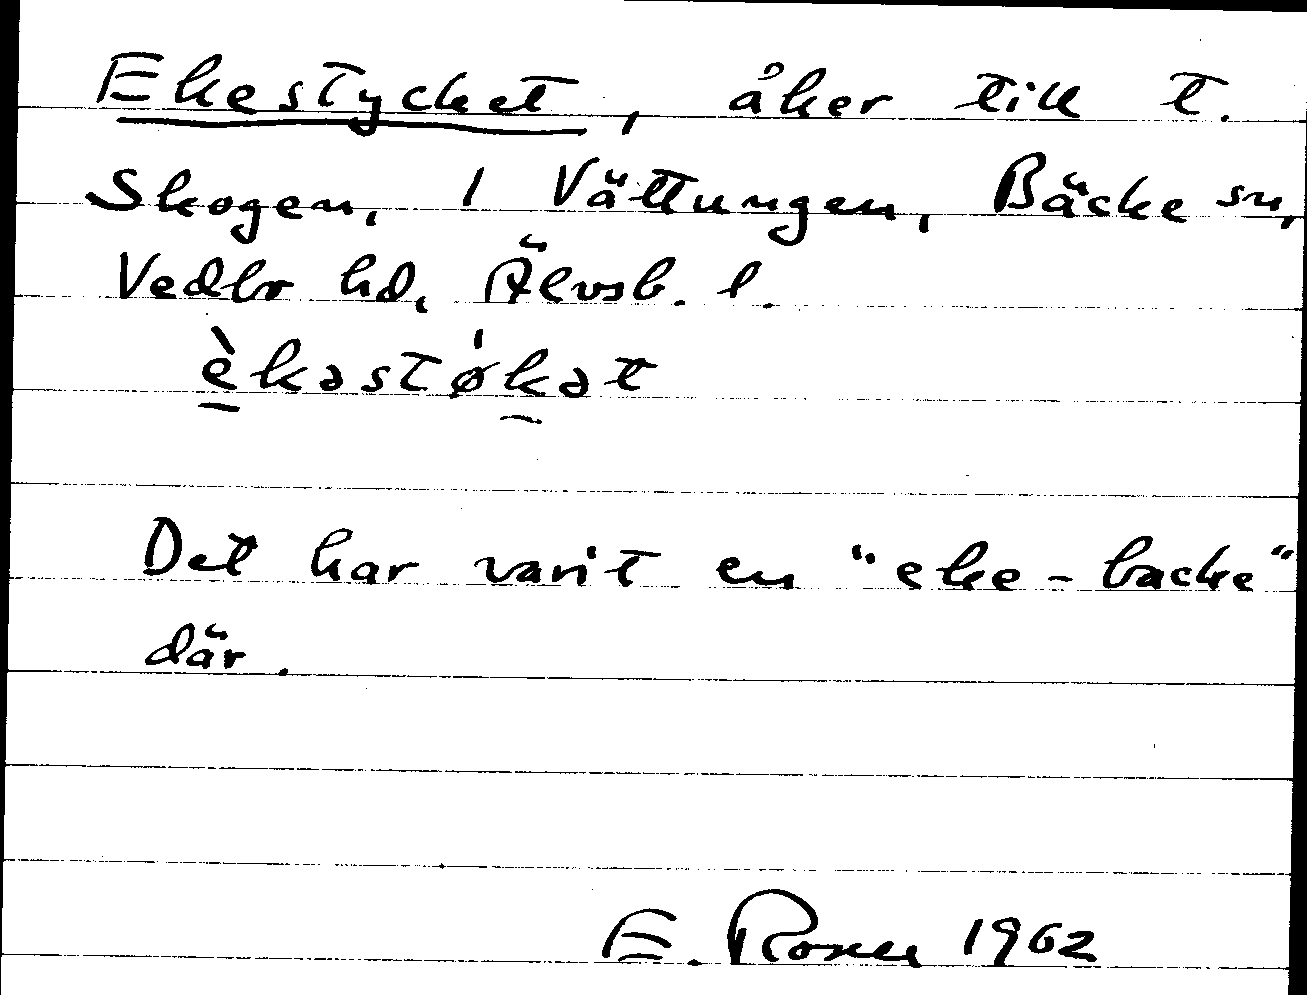 Ekestycket, åker till t.
Skogen, 1 Vättungen, Bäcke sn,
Vedbr hd, Älvsb. l.
èkəstǿkət
Det har varit en "eke-backe"
där.
E. Rosell 1962